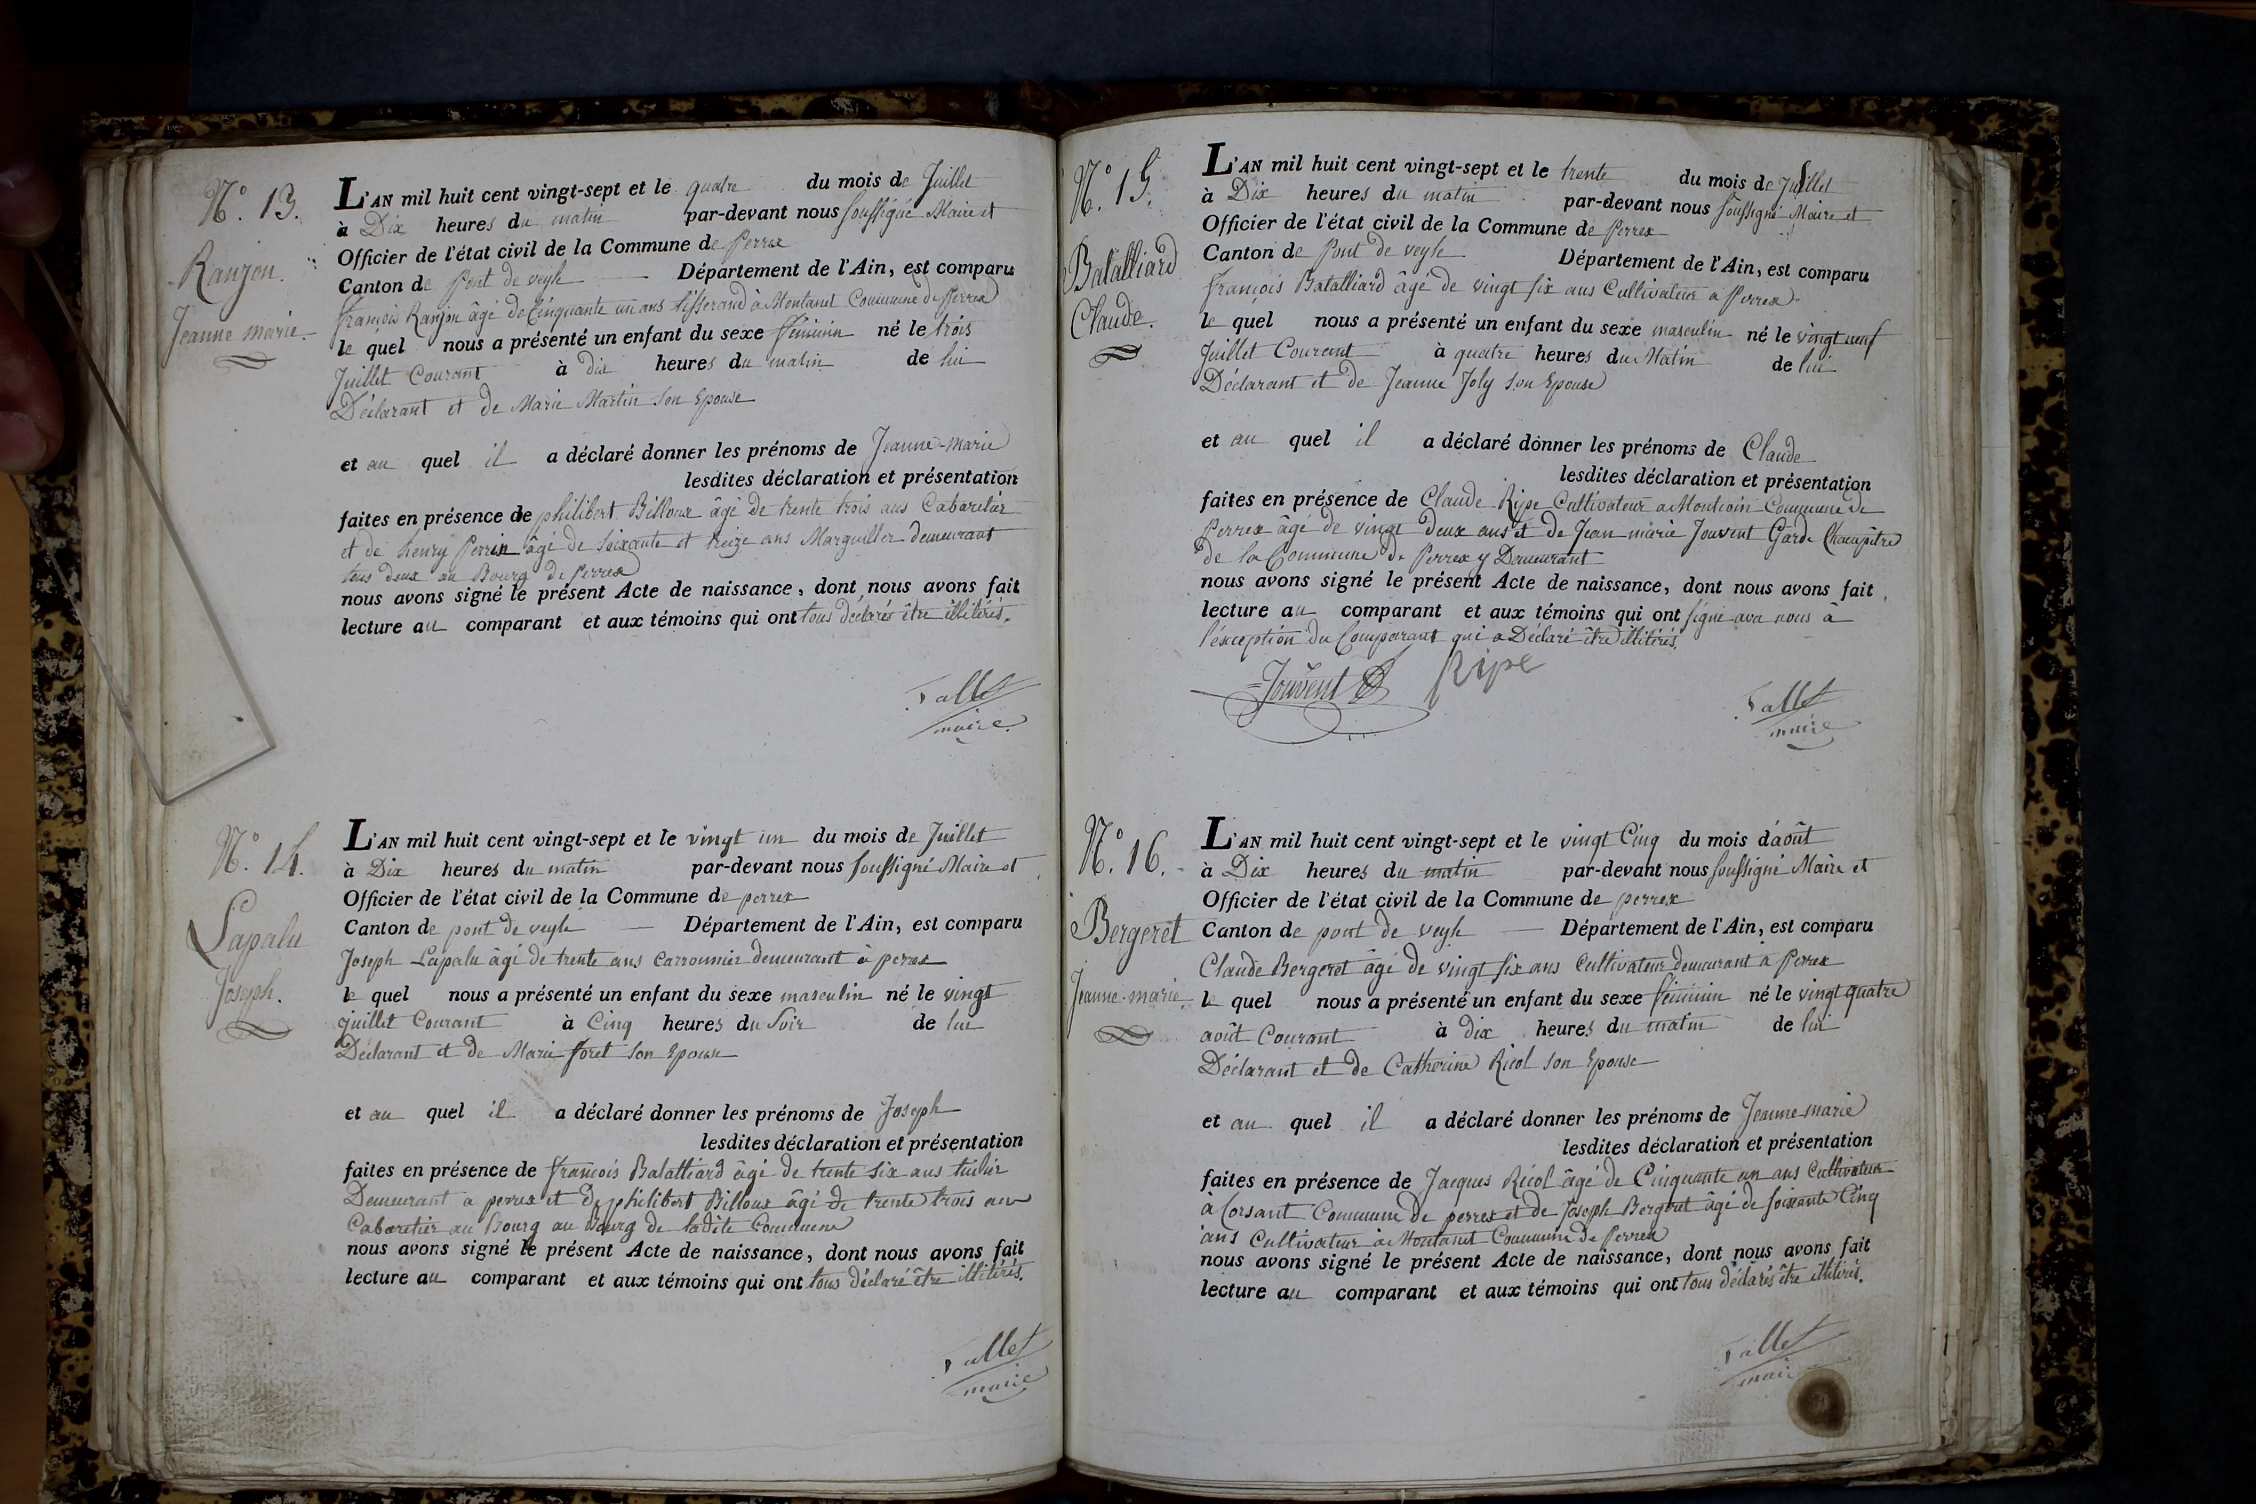 N.° 13.
Ranjon.
Jeanne marie.
L'AN mil huit cent vingt-sept et le quatre du mois de Juillet
à Dix heures du matin par-devant nous soussigné Maire et
Officier de l'état civil de la Commune de Perrex
Canton de Pont de veyle Département de l'Ain, est comparu
françois Ranjon âgé de Cinquante un ans tisserand à Montanet Commune de Perrex
le quel nous a présenté un enfant du sexe féminin né le trois
Juillet Courant à dix heures du matin de lui
Déclarant et de Marie Martin son Epouse
et au quel il a déclaré donner les prénoms de Jeanne-marie
lesdites déclaration et présentation
faites en présence de philibert Billoux âgé de trente trois ans Cabaretier
et de henry Perrin âgé de soixante et treize ans Marguillier demeurant
tous deux au Bourg de Perrex
nous avons signé le présent Acte de naissance, dont nous avons fait
lecture au comparant et aux témoins qui ont tous déclarés être illitérés.
Tallet
maire
N.° 14.
Lapalu
Joseph.
L'AN mil huit cent vingt-sept et le vingt un du mois de Juillet
à Dix heures du matin par-devant nous soussigné Maire et
Officier de l'état civil de la Commune de perrex
Canton de pont de veyle Département de l'Ain, est comparu
Joseph Lapalu âgé de trente ans Carronnier demeurant à perrex
le quel nous a présenté un enfant du sexe masculin né le vingt
juillet Courant à Cinq heures du Soir de lui
Déclarant et de Marie foret son Epouse
et au quel il a déclaré donner les prénoms de Joseph
lesdites déclaration et présentation
faites en présence de françois Batalliard âgé de trente six ans tuilier
Demeurant a perrex et de philibert Billoux âgé de trente trois ans
Cabaretier au bourg au bourg de ladite Commune
nous avons signé le présent Acte de naissance, dont nous avons fait
lecture au comparant et aux témoins qui ont tous déclaré être illitérés.
Tallet
maire
N.° 15.
Batalliard
Claude.
L'AN mil huit cent vingt-sept et le trente du mois de Juillet
à Dix heures du matin par-devant nous soussigné Maire et
Officier de l'état civil de la Commune de Perrex
Canton de Pont de veyle Département de l'Ain, est comparu
françois Batalliard âgé de vingt six ans Cultivateur a Perrex
le quel nous a présenté un enfant du sexe masculin né le vingt neuf
Juillet Courant à quatre heures du Matin de lui
Déclarant et de Jeanne Joly son Epouse
et au quel il a déclaré donner les prénoms de Claude
lesdites déclaration et présentation
faites en présence de Claude Ripe Cultivateur a Commune de
Perrex âgé de vingt deux ans et de Jean marie Jouvent Garde Champêtre
de la Commune de Perrex y Demeurant
nous avons signé le présent Acte de naissance, dont nous avons fait
lecture au comparant et aux témoins qui ont signé avec nous à
l'éxception du Comparant qui a Déclaré être illitérés.
Jouvent Ripe
Tallet
maire
N.° 16.
Bergeret
Jeanne-marie
L'AN mil huit cent vingt-sept et le vingt Cinq du mois d'août
à Dix heures du matin par-devant nous soussigné Maire et
Officier de l'état civil de la Commune de perrex
Canton de pont de veyle Département de l'Ain, est comparu
Claude Bergeret âgé de vingt six ans Cultivateur demeurant à Perrex
le quel nous a présenté un enfant du sexe féminin né le vingt quatre
août Courant à dix heures du matin de lui
Déclarant et de Catherine Ricol son Epouse
et au quel il a déclaré donner les prénoms de Jeanne-marie
lesdites déclaration et présentation
faites en présence de Jacques Ricol âgé de Cinquante un ans Cultivateur
à Corsant Commune de perrex et de Joseph Bergeret âgé de soixante Cinq
ans Cultivateur a Montanet Commune de Perrex
nous avons signé le présent Acte de naissance, dont nous avons fait
lecture au comparant et aux témoins qui ont tous déclarés être illitérés.
Tallet
maire